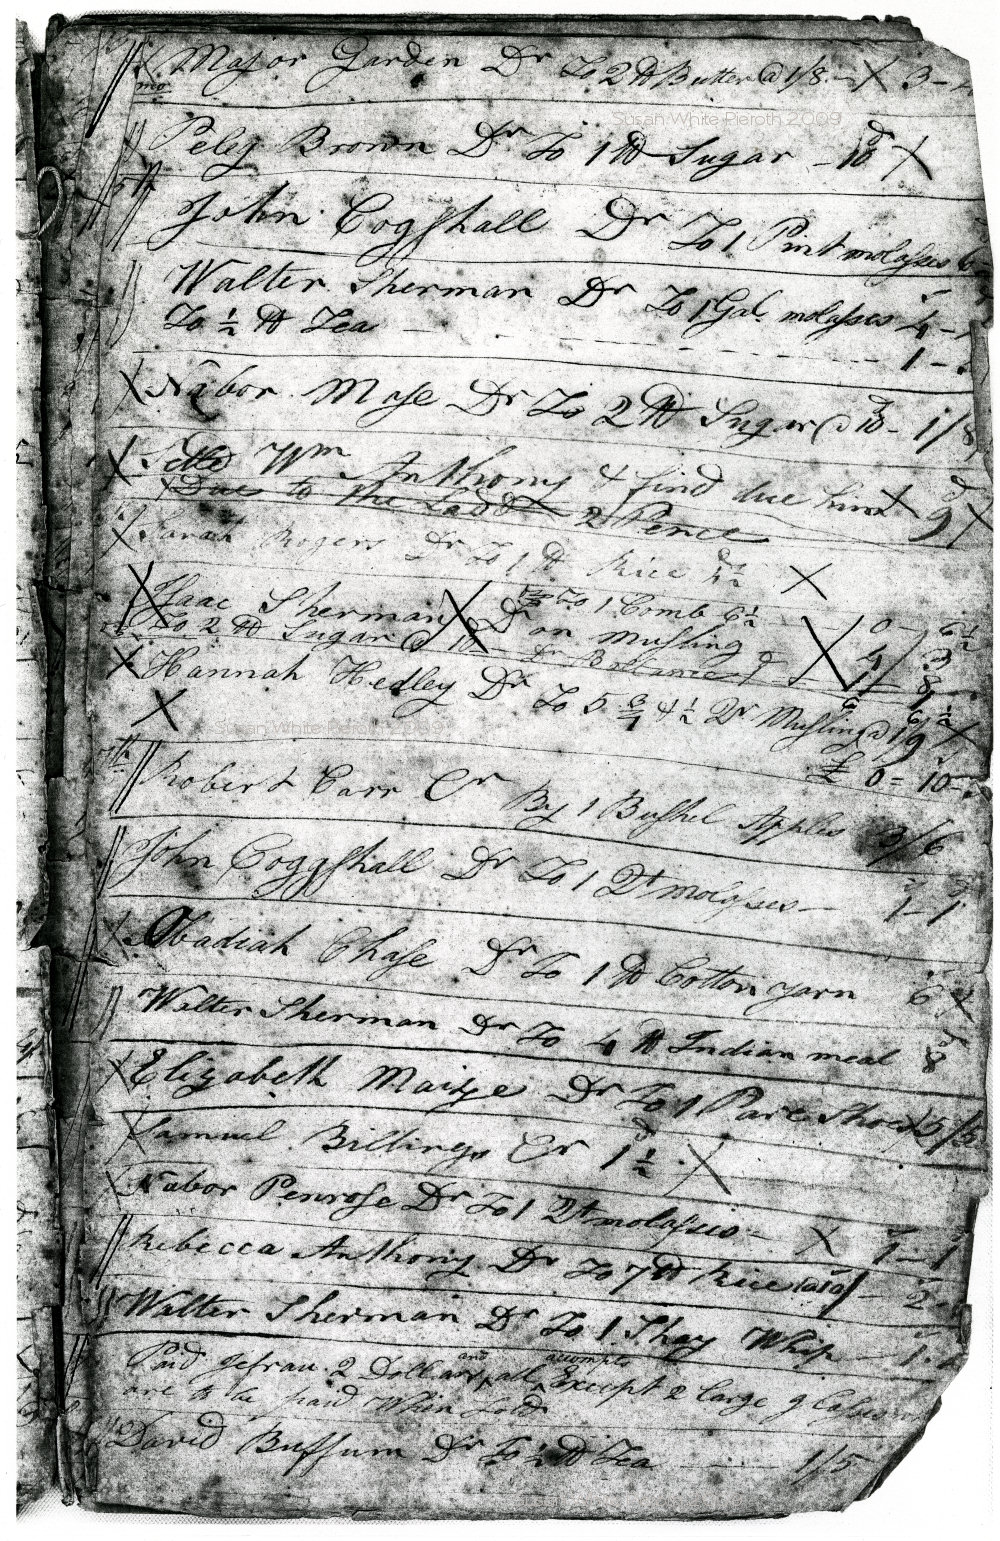 Major Garden Dr To 2 ℔ Butter @ 1/8 - X 3 -
mo
Susan White Pieroth 2009
Peleg Brown Dr To 1 ℔ Sugar - 10d X
John Cogshall Dr To 1 Pint molasses 6
Walter Sherman Dr To 1 Gal molasses 4 -
To ½ ℔ Tea - - - 1 -
Nabor Mase Dr To 2 ℔ Sugar @ 10 - 1/8
Wm Anthony & find due him X 9d X
Due to the 2 Pence
Sarah Rogers Dr To 1 ℔ Rice X
Isaac Sherman X Dr To 1 Comb 6½ - 0 - 6½
on Musling 4 / 3
To 2 ℔ Sugar @ 10 - 1 8
Hannah Hedley Dr To 5 Qr Musling @ 19
X
Susan White Pieroth 2009
£ 0 - 10 -
Robert Carr Cr By 1 Bushel Apples 3/6
John Coggshall Dr To 1 Qt molasses - 1 - 1
Obadiah Chase Dr To 1 ℔ Cotton yarn 6 X
Walter Sherman Dr To 4 ℔ Indian meal 8
Elizabeth Maize Dr To 1 Pare Shoes
Samuel Billings Cr 1½ X
Nabor Penrose Dr To 1 Qt molasses - X 1 - 1
Rebecca Anthony Dr To 7 ℔ Rice - 2
Walter Sherman Dr To 1 Shay Whip - 1
Paid Jefrau 2 Dollars and all accompts Except 2 large
are to be paid When Sold
David Buffum Dr To ½ ℔ Tea - - - 1/5